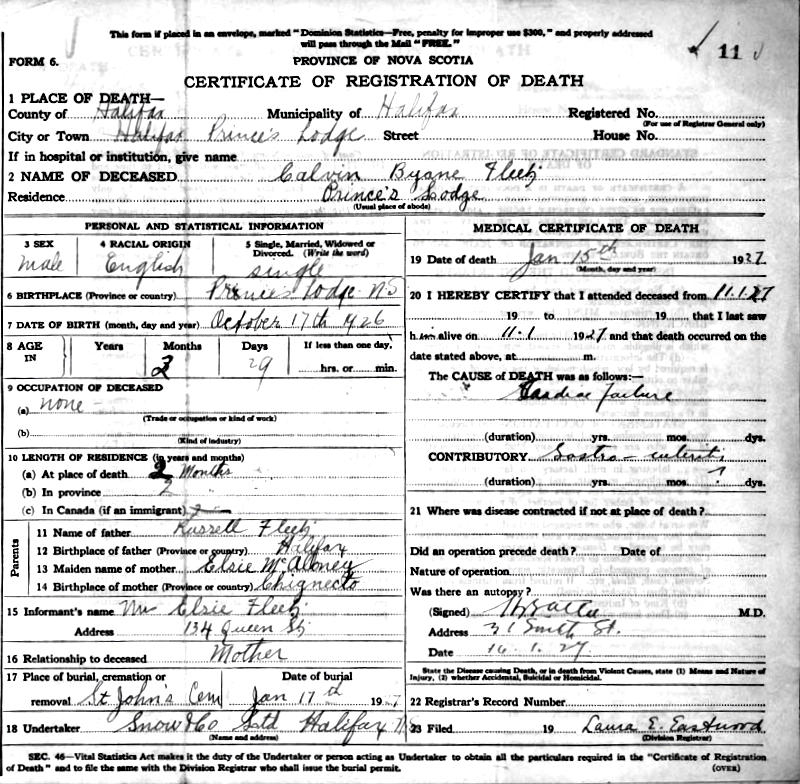 This form if placed in an envelope, marked "Dominion Statistics—Free, penalty for improper use $300," and properly addressed
will pass through the Mail "FREE."
11
FORM 6.
PROVINCE OF NOVA SCOTIA
CERTIFICATE OF REGISTRATION OF DEATH
1 PLACE OF DEATH—
County of Halifax Municipality of Halifax Registered No.
(For use of Registrar General only)
City or Town Halifax Prince's Lodge Street House No.
If in hospital or institution, give name
2 NAME OF DECEASED Calvin Byane Fleet
Residence Prince's Lodge
(Usual place of abode)
PERSONAL AND STATISTICAL INFORMATION
3 SEX male
4 RACIAL ORIGIN English
5 Single, Married, Widowed or Divorced. (Write the word) single
6 BIRTHPLACE (Province or country) Prince's Lodge NS
7 DATE OF BIRTH (month, day and year) October 17th 1926
8 AGE IN Years Months Days If less than one day,
2 29 hrs. or min.
9 OCCUPATION OF DECEASED
(a) none
(Trade or occupation or kind of work)
(b)
(Kind of industry)
10 LENGTH OF RESIDENCE (in years and months)
(a) At place of death 2 Months
(b) In province 2
(c) In Canada (if an immigrant)
Parents
11 Name of father Russell Fleet
12 Birthplace of father (Province or country) Hilifax
13 Maiden name of mother Elsie McAloney
14 Birthplace of mother (Province or country) Chignecto
15 Informant's name Mrs Elsie Fleet
Address 134 Queen St
16 Relationship to deceased Mother
17 Place of burial, cremation or removal St John's Cem
Date of burial Jan 17th 1927
18 Undertaker Snow & Co Ltd Halifax NS
(Name and address)
MEDICAL CERTIFICATE OF DEATH
19 Date of death Jan 15th 1927
(Month, day and year)
20 I HEREBY CERTIFY that I attended deceased from 11.1.27
19 to 19 , that I last saw
him alive on 11.1 1927 and that death occurred on the
date stated above, at m.
The CAUSE of DEATH was as follows:—
Cardiac failure
(duration) yrs. mos. dys.
CONTRIBUTORY Gastro-enteritis
(duration) yrs. mos. 7 dys.
21 Where was disease contracted if not at place of death?
Did an operation precede death? Date of
Nature of operation
Was there an autopsy?
(Signed) M.D.
Address 31 South St.
Date 16.1.27
State the Disease causing Death, or in death from Violent Causes, state (1) Means and Nature of
Injury, (2) whether Accidental, Suicidal or Homicidal.
22 Registrar's Record Number
23 Filed 19 Laura E. Eastwood
(Division Registrar)
SEC. 46—Vital Statistics Act makes it the duty of the Undertaker or person acting as Undertaker to obtain all the particulars required in the "Certificate of Registration
of Death" and to file the same with the Division Registrar who shall issue the burial permit.
(OVER)